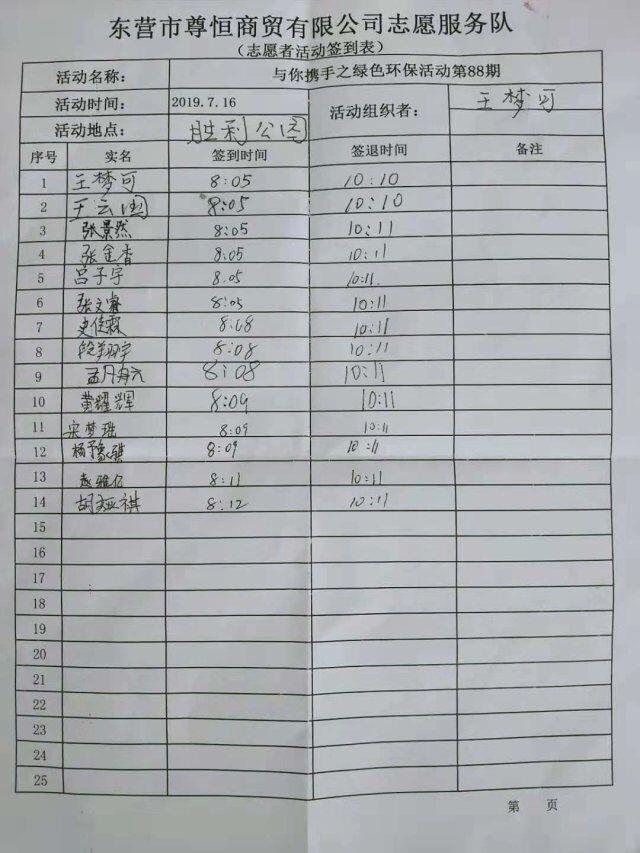 东营市尊恒商贸有限公司志愿服务队
（志愿者活动签到表）
活动名称： 与你携手之绿色环保活动第88期
活动时间： 2019.7.16 活动组织者： 王梦可
活动地点： 胜利公园
序号 实名 签到时间 签退时间 备注
1 王梦可 8:05 10:10
2 王云国 8:05 10:10
3 张景然 8:05 10:11
4 张金香 8:05 10:11
5 吕子宇 8.05 10:11
6 张文睿 8:05 10:11
7 史佳霖 8:08 10:11
8 段翔宇 8:08 10:11
9 8:08 10:11
10 黄耀辉 8:09 10:11
11 宋梦瑶 8:09 10:11
12 8:09 10:11
13 赵雅亿 8:11 10:11
14 8:12 10:11
15
16
17
18
19
20
21
22
23
24
25
第 页